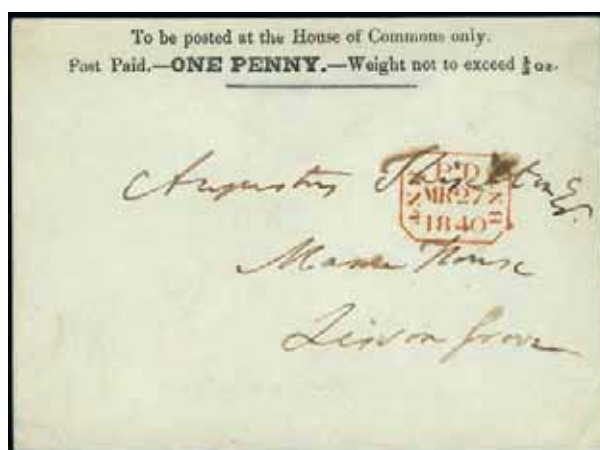 To be posted at the House of Commons only.
Post Paid.—ONE PENNY.—Weight not to exceed ½ oz.
PD
MR 27
1840
Augustus
Manor House
Lisson Grove